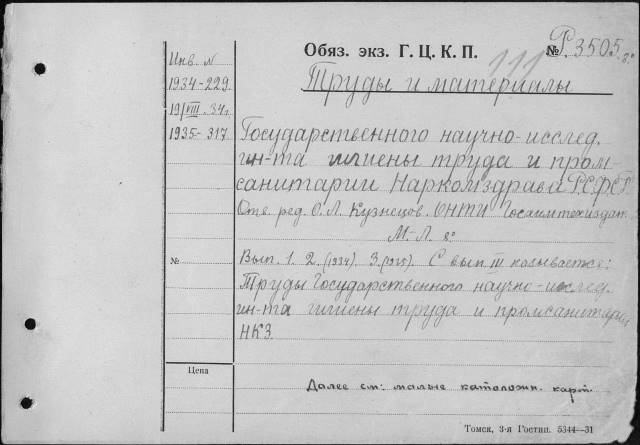 Инв. N
1934-229
19/VIII.34 г.
1935-317
№
Цена
Обяз. экз. Г. Ц. К. П. № Р.3505 8°
Труды и материалы
Государственного научно-исслед.
ин-та гигиены труда и пром-
санитарии Наркомздрава Р.С.Ф.С.Р.
Отв. ред. О. Л. Кузнецов. ОНТИ Госхимтехиздат.
М-Л. 8°
Вып. 1. 2. (1934). 3. (1935). С вып III называется:
Труды Государственного научно-исслед.
ин-та гигиены труда и промсанитарии
НКЗ.
Далее см: малые каталожн. карт.
Томск, 3-я Гостип. 5344—31